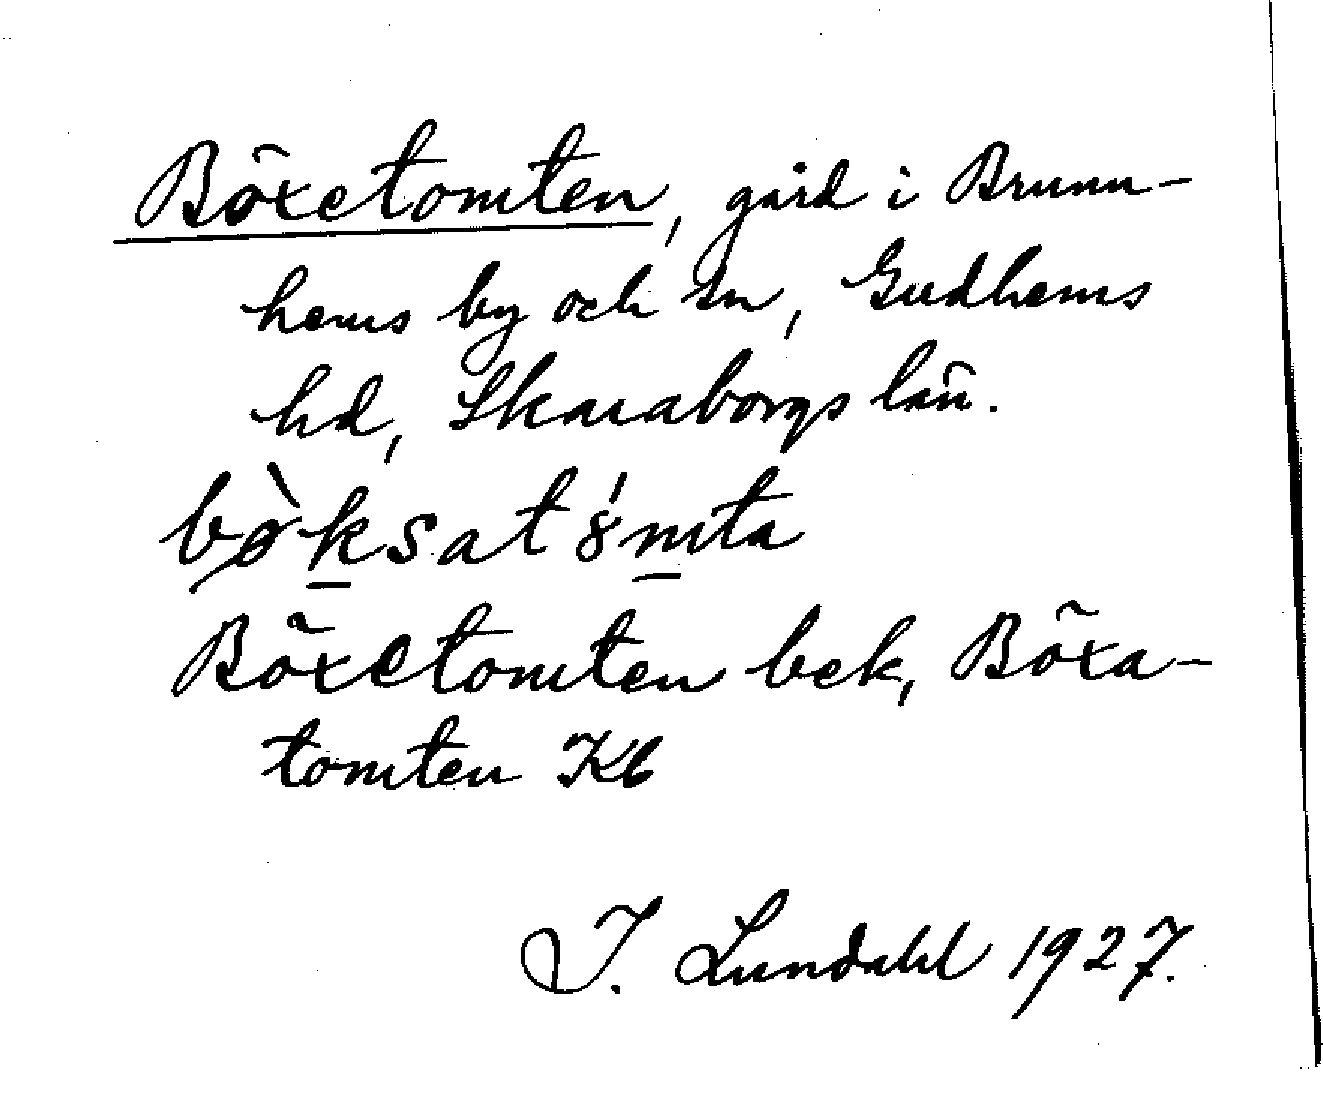 Böxetomten, gård i Brunn-
hems by och sn, Gudhems
hd, Skaraborgs län.
bø̀ksatȣ́mta
Böxetomten bek, Böxa-
tomten Kb
I. Lundahl 1927.